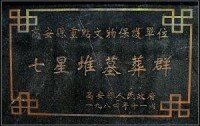 高安县重點文物保護單位
七星堆墓葬群
高安县人民政府
一九八六年十一月